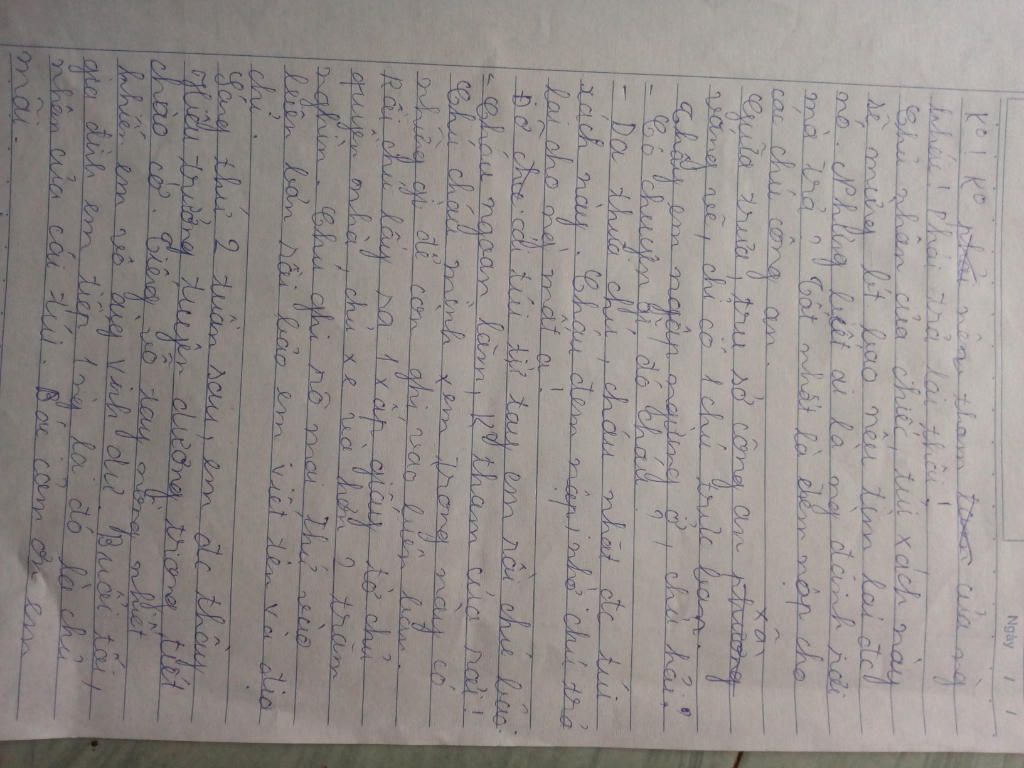 Ngày / /
Ko! Ko nên tham của ng
khác! Phải trả lại thôi!
Chủ nhân của chiếc túi xách này
sẽ mừng bt bao nếu tìm lại đc
nó. Nhưng biết ai là ng đánh rơi
mà trả? Tốt nhất là đem nộp cho
các chú công an.
Giữa trưa, trụ sở công an xã
vắng vẻ, chỉ có 1 chú trực ban.
Thấy em ngập ngừng ở, chú hỏi:
- Có chuyện gì đó cháu?
- Dạ thưa chú, cháu nhặt đc túi
xách này. Cháu đem nộp, nhờ chú trả
lại cho ng mất ạ!
Đỡ cái túi từ tay em rồi chú bảo:
- Cháu ngoan lắm, Ko tham của rơi!
Chú cháu mình xem trong này có
những gì để con ghi vào biên bản.
Rồi chú lấy ra 1 xấp giấy tờ chủ
quyền nhà, chủ xe và hơn 2 trăm
nghìn. Chú ghi rõ mọi thứ vào
biên bản rồi bảo em viết tên và địa
chỉ.
Sáng thứ 2 tuần sau, em đc thầy
Hiệu trưởng tuyên dương trong tiết
chào cờ. Tiếng vỗ tay nồng nhiệt
khiến em vô cùng vinh dự. Buổi tối,
gia đình em tiếp 1 ng lạ đó là chủ
nhân của cái túi. Bác cảm ơn em
mãi.